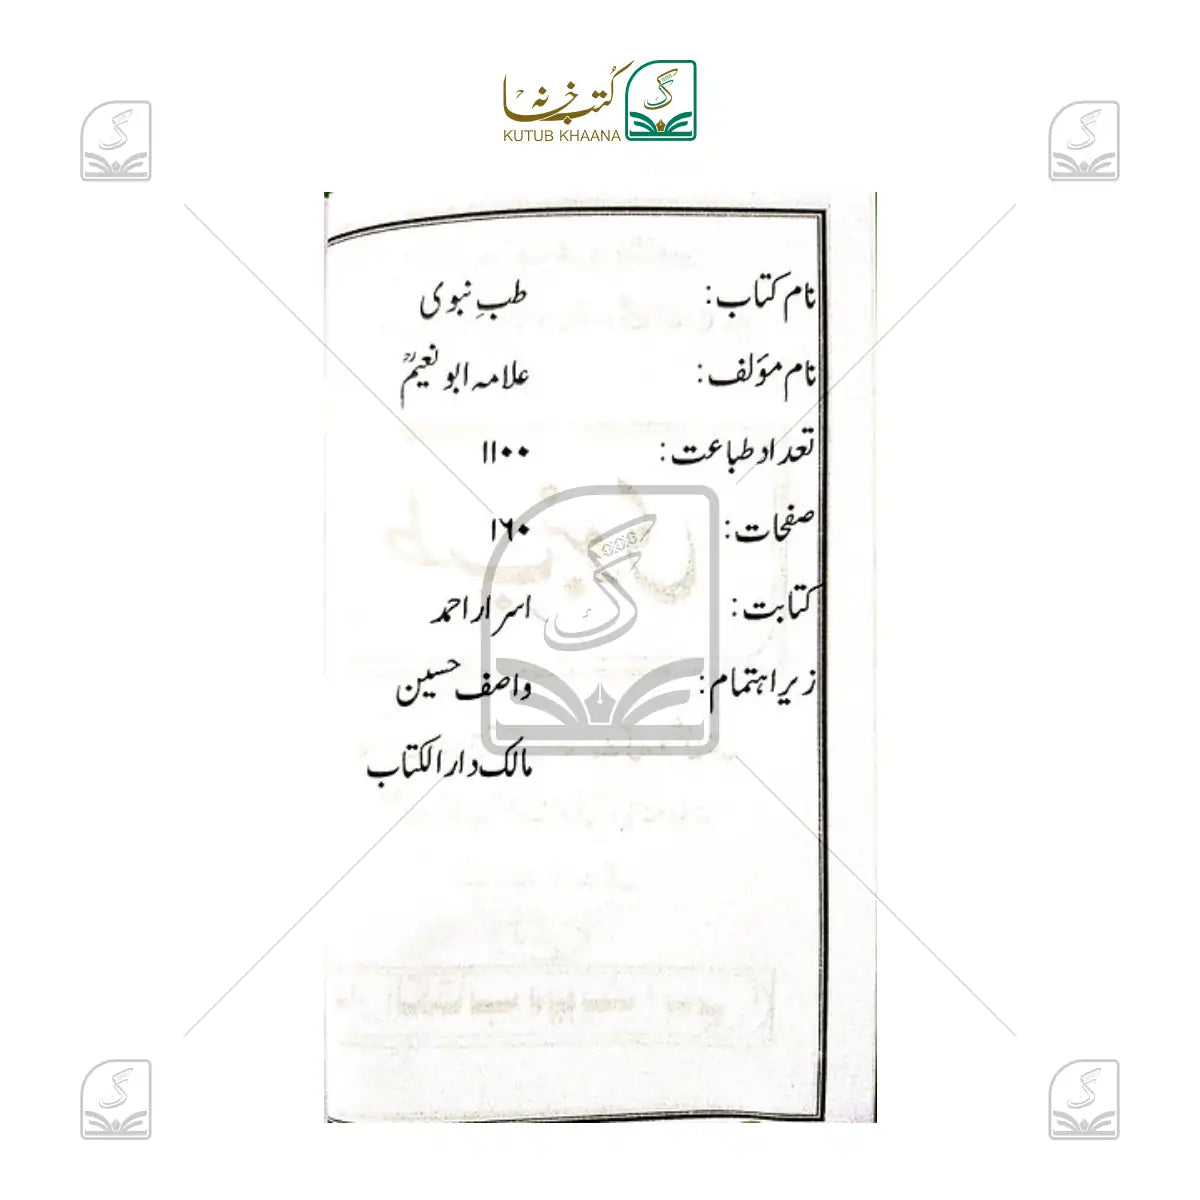 کتب خانہ
KUTUB KHAANA
نام کتاب: طبِ نبوی
نام مؤلف: علامہ ابو نعیمؒ
تعداد طباعت: ۱۱۰۰
صفحات: ۱۶۰
کتابت: اسرار احمد
زیر اہتمام: واصف حسین
مالک دار الکتاب